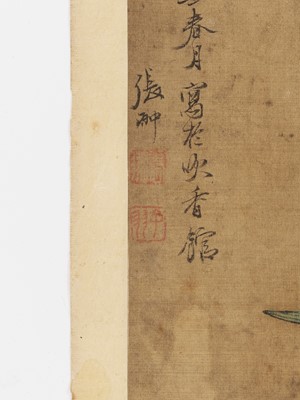 春月寫於吹香館
張翀